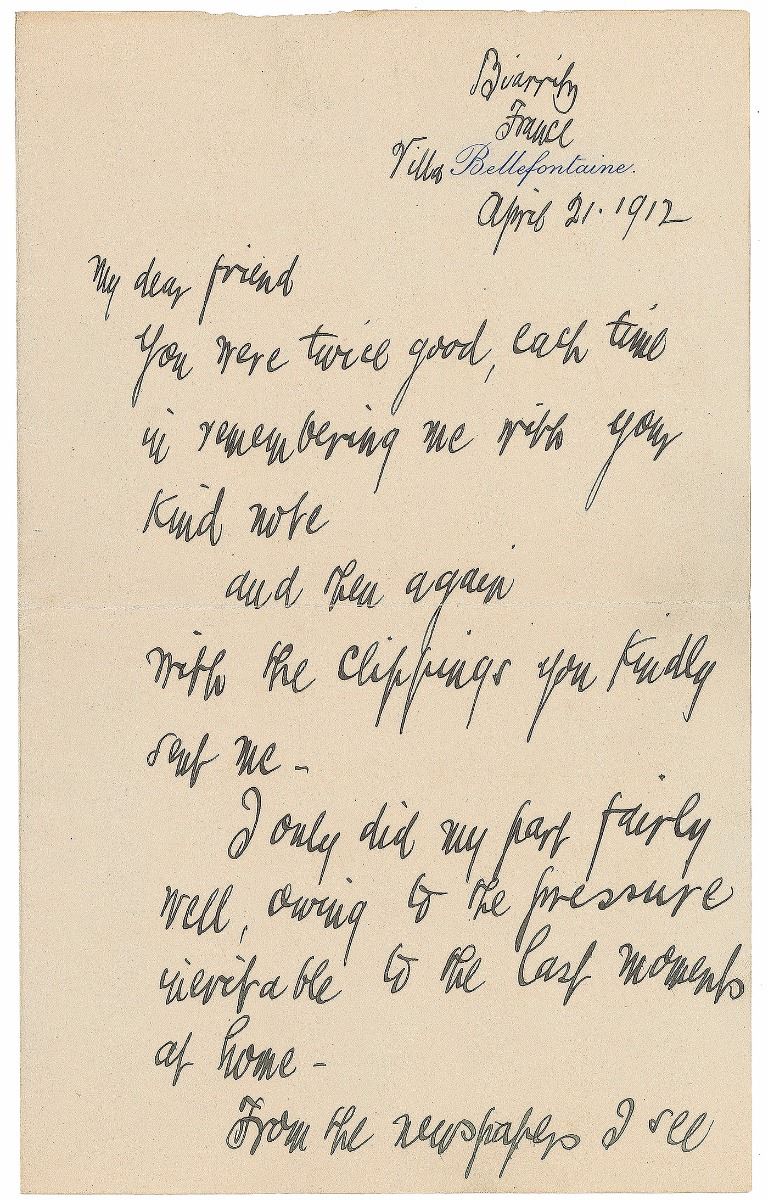 Biarritz
France
Villa Bellefontaine.
April 21. 1912
My dear friend
You were twice good, each time
in remembering me with your
kind note
and then again
with the clippings you kindly
sent me -
I only did my part fairly
well, owing to the pressure
inevitable to the last moments
at home -
From the newspapers I see